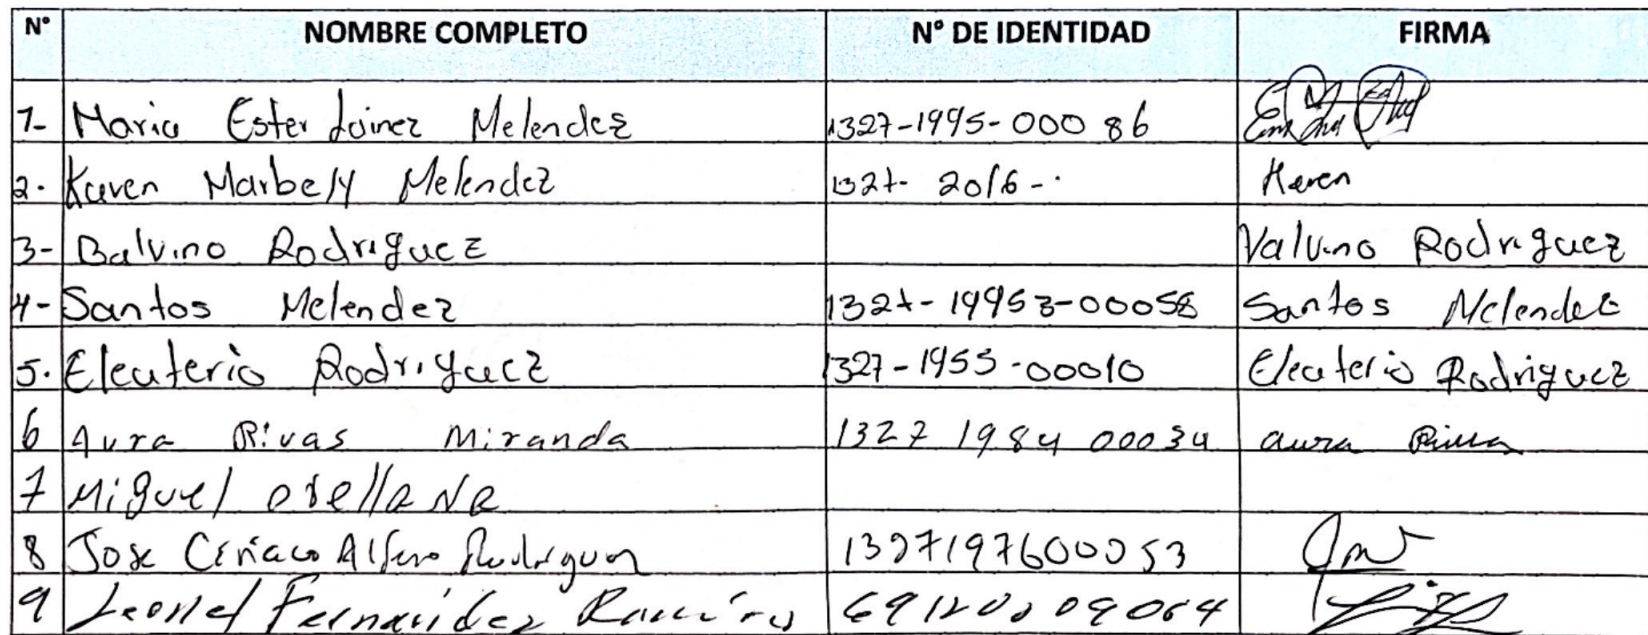 N° NOMBRE COMPLETO N° DE IDENTIDAD FIRMA
1- Maria Ester Lainez Melendez 1327-1995-00086
2. Karen Marbely Melendez 1327- 2016-. Keren
3- Balvino Rodriguez Valvino Rodriguez
4- Santos Melendez 1327-19953-00058 Santos Melendez
5. Eleuterio Rodriguez 1327-1955-00010 Eleuterio Rodriguez
6 Aura Rivas Miranda 1327 1984 00034 aura Rivas
7 Miguel orellana
8 Jose Ciriaco Alfaro Rodriguez 1327197600053
9 Leonel Fernandez Ramirez